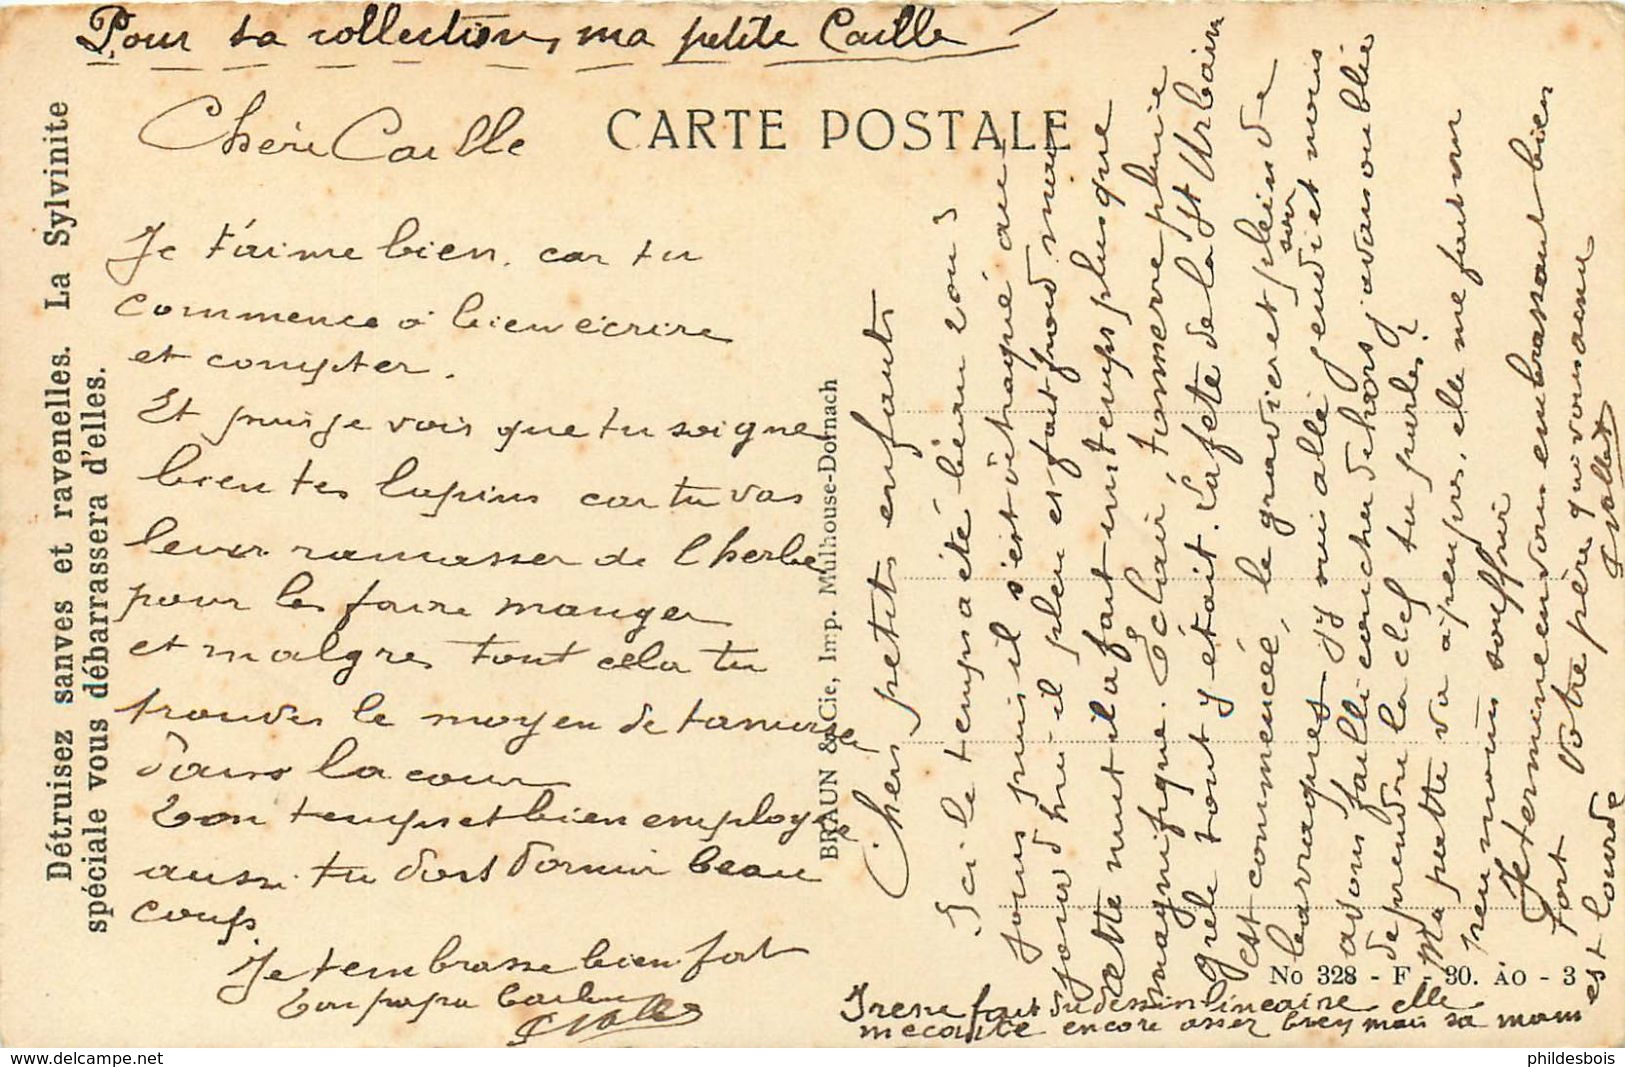 Pour ta collection, ma petite Caille
CARTE POSTALE
Chérie Caille
Je t'aime bien. car tu
commence à bien écrire
et compter.
Et puis je vois que tu soigne
bien tes lapins car tu vas
leur ramasser de l'herbe
pour les faire manger
et malgres tout cela tu
trouves le moyen de t'amuser
dans la cour
ton temps est bien employée
aussi tu dois dormir beau
coup
Je t'embrasse bien fort
ton papa
Détruisez sanves et ravenelles. La Sylvinite
spéciale vous débarrassera d'elles.
BRAUN & Cie, Imp. Mulhouse-Dornach
Chers petits enfants
Ici le temps a été beau 2 ou 3
jours puis il s'est détraqué au
jour d'hui il pleu et fait froid mais
cette nuit il a fait un temps plus que
magnifique. Éclair, tonnerre pluie
Grèle tout y était. La fete de la St Urbain
est commencée, le gravier est plein de
baraques j'y suis allé jeudi et nous
avons failli coucher dehors j'avais oublié
de prendre la clef tu parles?
Ma patte va à peu près, elle me fait un
peu moins souffrir
Je termine en vous embrassant bien
fort Votre père qui vous aime
No 328 - F - 30. AO - 3
Irene fait du dessin linéaire elle
m'ecoute encore assez bien mais sa main
est lourde
phildesbois